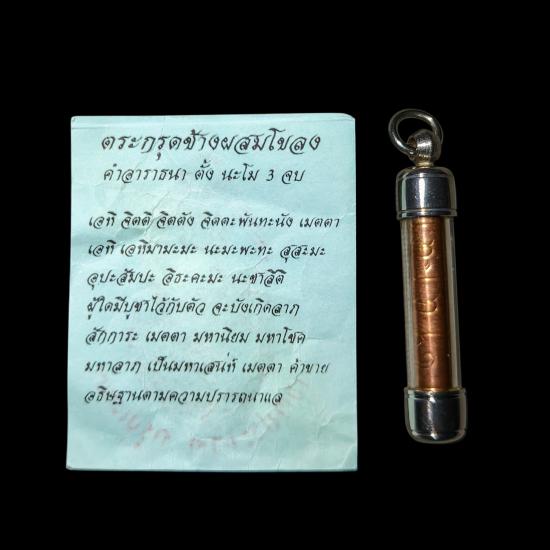 ตระกรุดช้างผสมโขลง
คำอาราธนา ตั้ง นะโม 3 จบ
เอหิ จิตติ จิตตัง จิตตะพันทะนัง เมตตา
เอหิ เอหิมามะมะ นะมะพะทะ สุสะมะ
อุปะสัมปะ อิธะคะมะ นะชาลีติ
ผู้ใดมีบูชาไว้กับตัว จะบังเกิดลาภ
สักการะ เมตตา มหานิยม มหาโชค
มหาลาภ เป็นมหาเสน่ห์ เมตตา ค้าขาย
อธิษฐานตามความปรารถนาแล